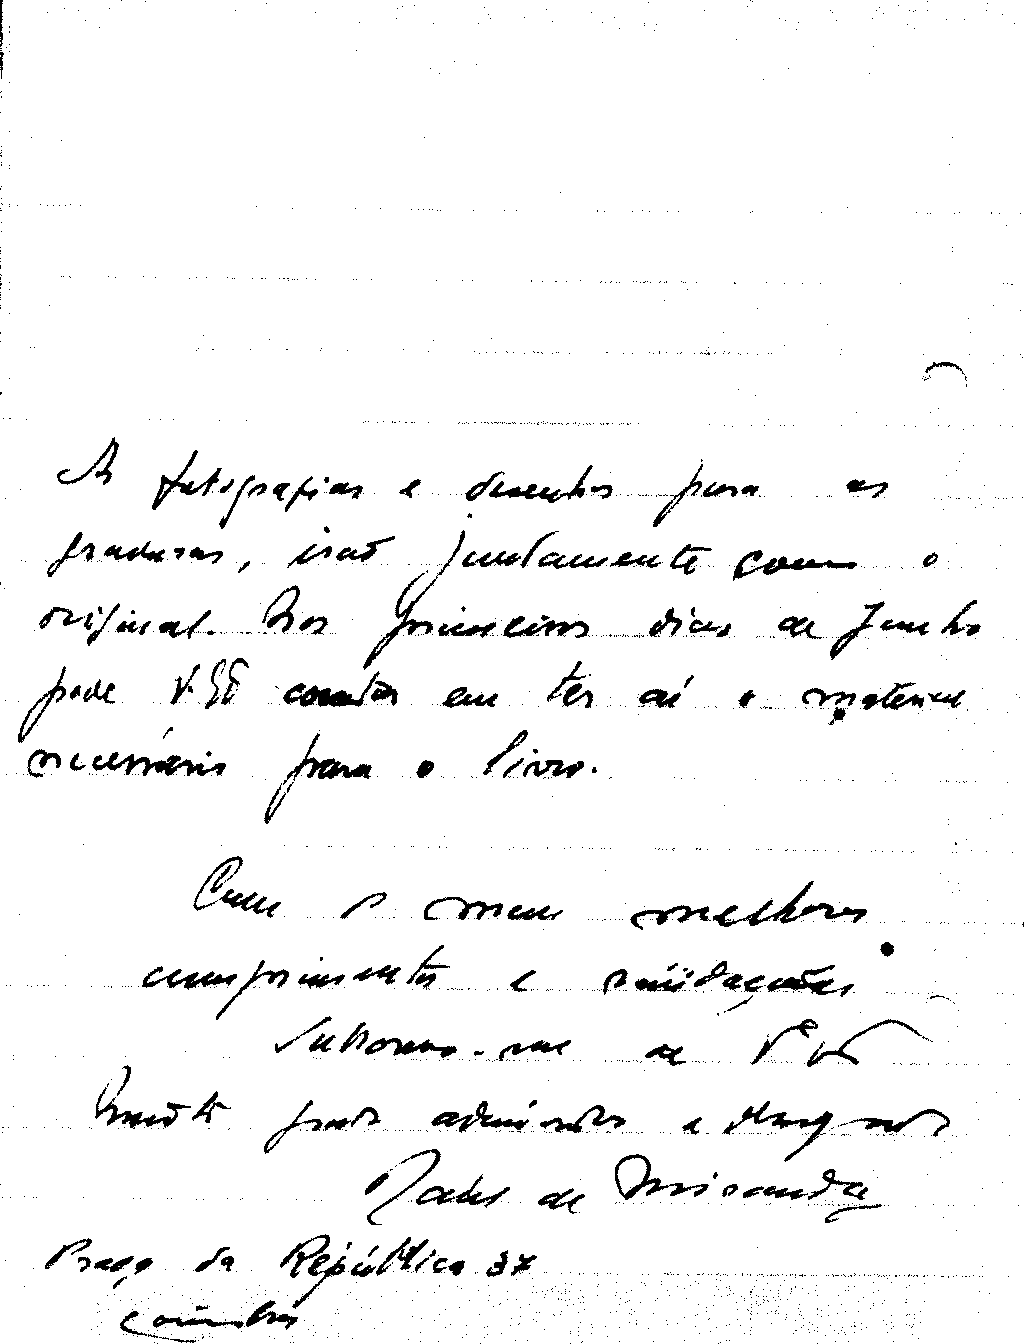 As fotografias e desenhos para as
gravuras, irão juntamente com o
original. Nos primeiros dias de Junho
pode V. Exª contar em ter aí o material
necessário para o livro.
Com os meus melhores
cumprimentos e saüdações
subscrevo-me de V. Exª
Muito grato admirador e
de Miranda
Praça da República 37
Coimbra